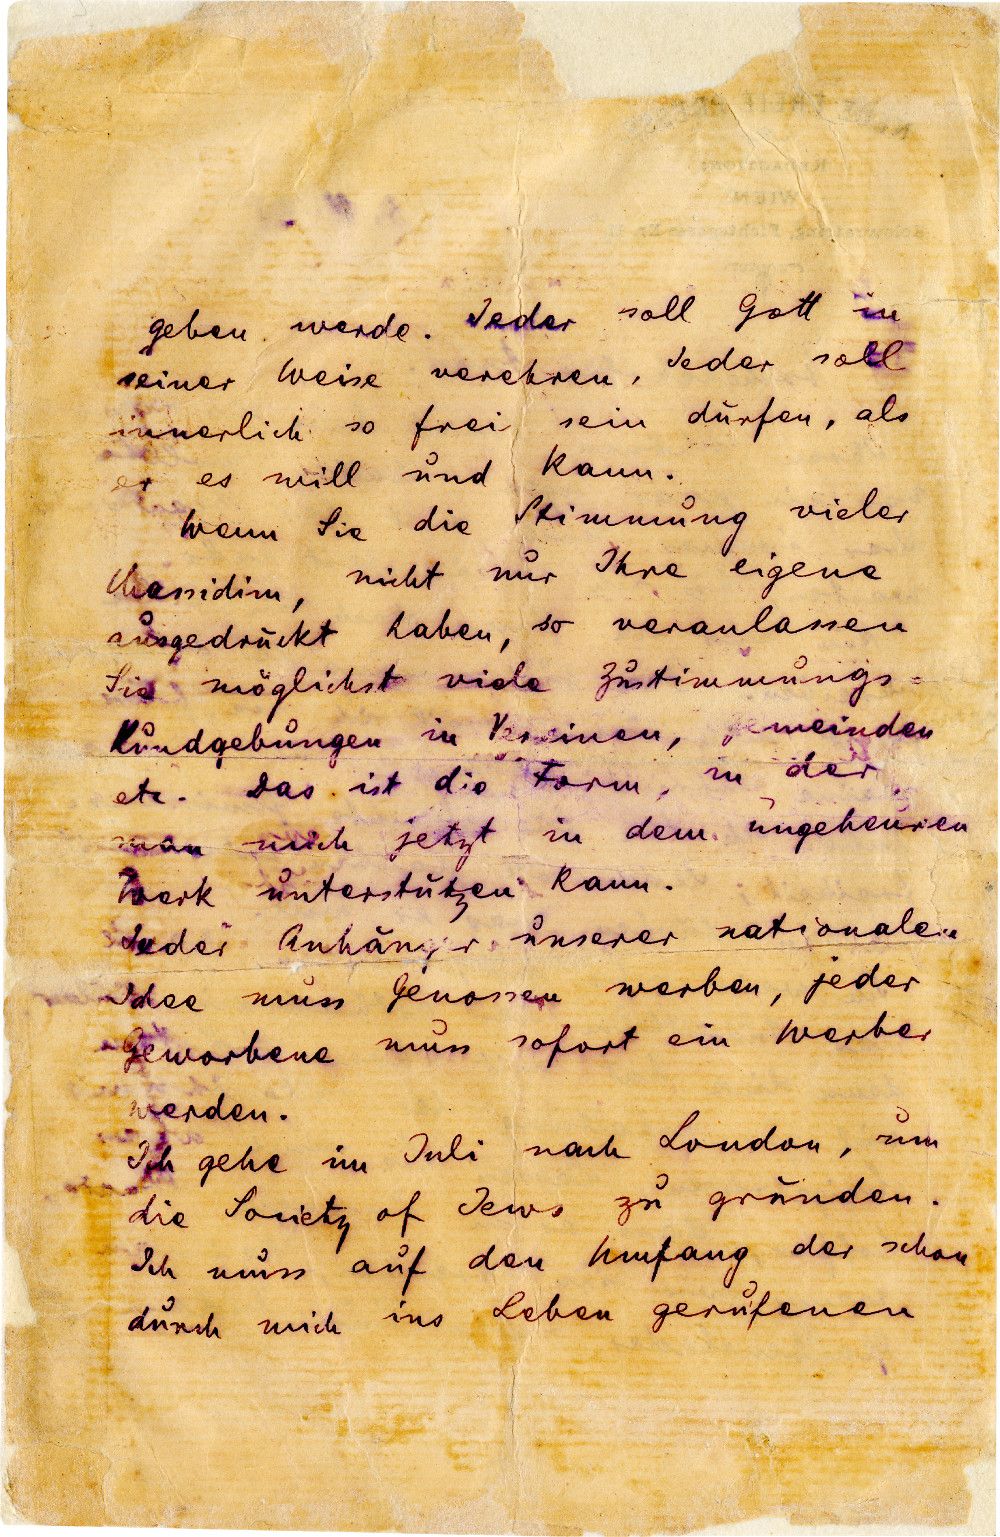 geben werde. Jeder soll Gott in
seiner Weise verehren, Jeder soll
innerlich so frei sein dürfen, als
er es will und kann.
Wenn Sie die Stimmung vieler
Chassidim, nicht nur Ihre eigene
ausgedrückt haben, so veranlassen
Sie möglichst viele Zustimmungs-
Kundgebungen in Vereinen, Gemeinden
etc. Das ist die Form, in der
man mich jetzt in dem ungeheuren
Werk unterstützen kann.
Jeder Anhänger unserer nationalen
Idee muss Genossen werben, jeder
Geworbene muss sofort ein Werber
werden.
Ich gehe im Juli nach London, um
die Society of Jews zu gründen.
Ich muss auf den Umfang der schon
durch mich ins Leben gerufenen